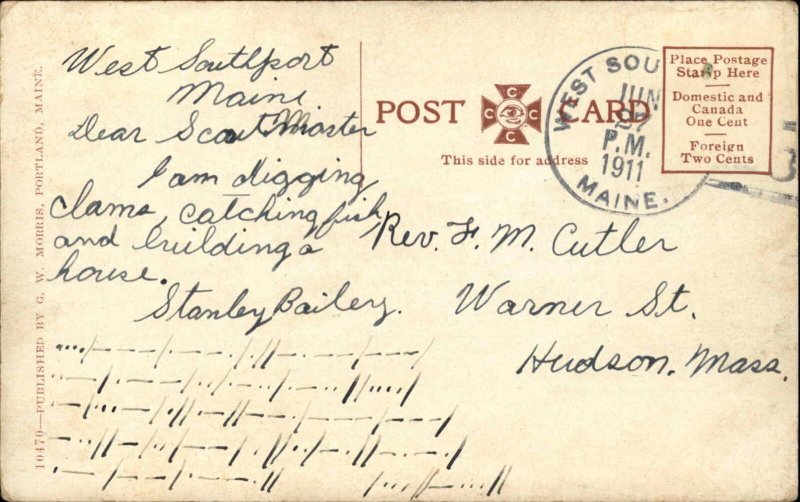 West Southport
Maine
Dear Scout Master
I am digging
clams, catching fish,
and building a
house.
Stanley Bailey.
POST CARD
C C C C
This side for address
WEST SOU
JUN
27
P.M.
1911
MAINE.
Place Postage
Stamp Here
Domestic and
Canada
One Cent
Foreign
Two Cents
Rev. F. M. Cutler
Warner St.
Hudson, Mass.
10470—PUBLISHED BY G. W. MORRIS, PORTLAND, MAINE.